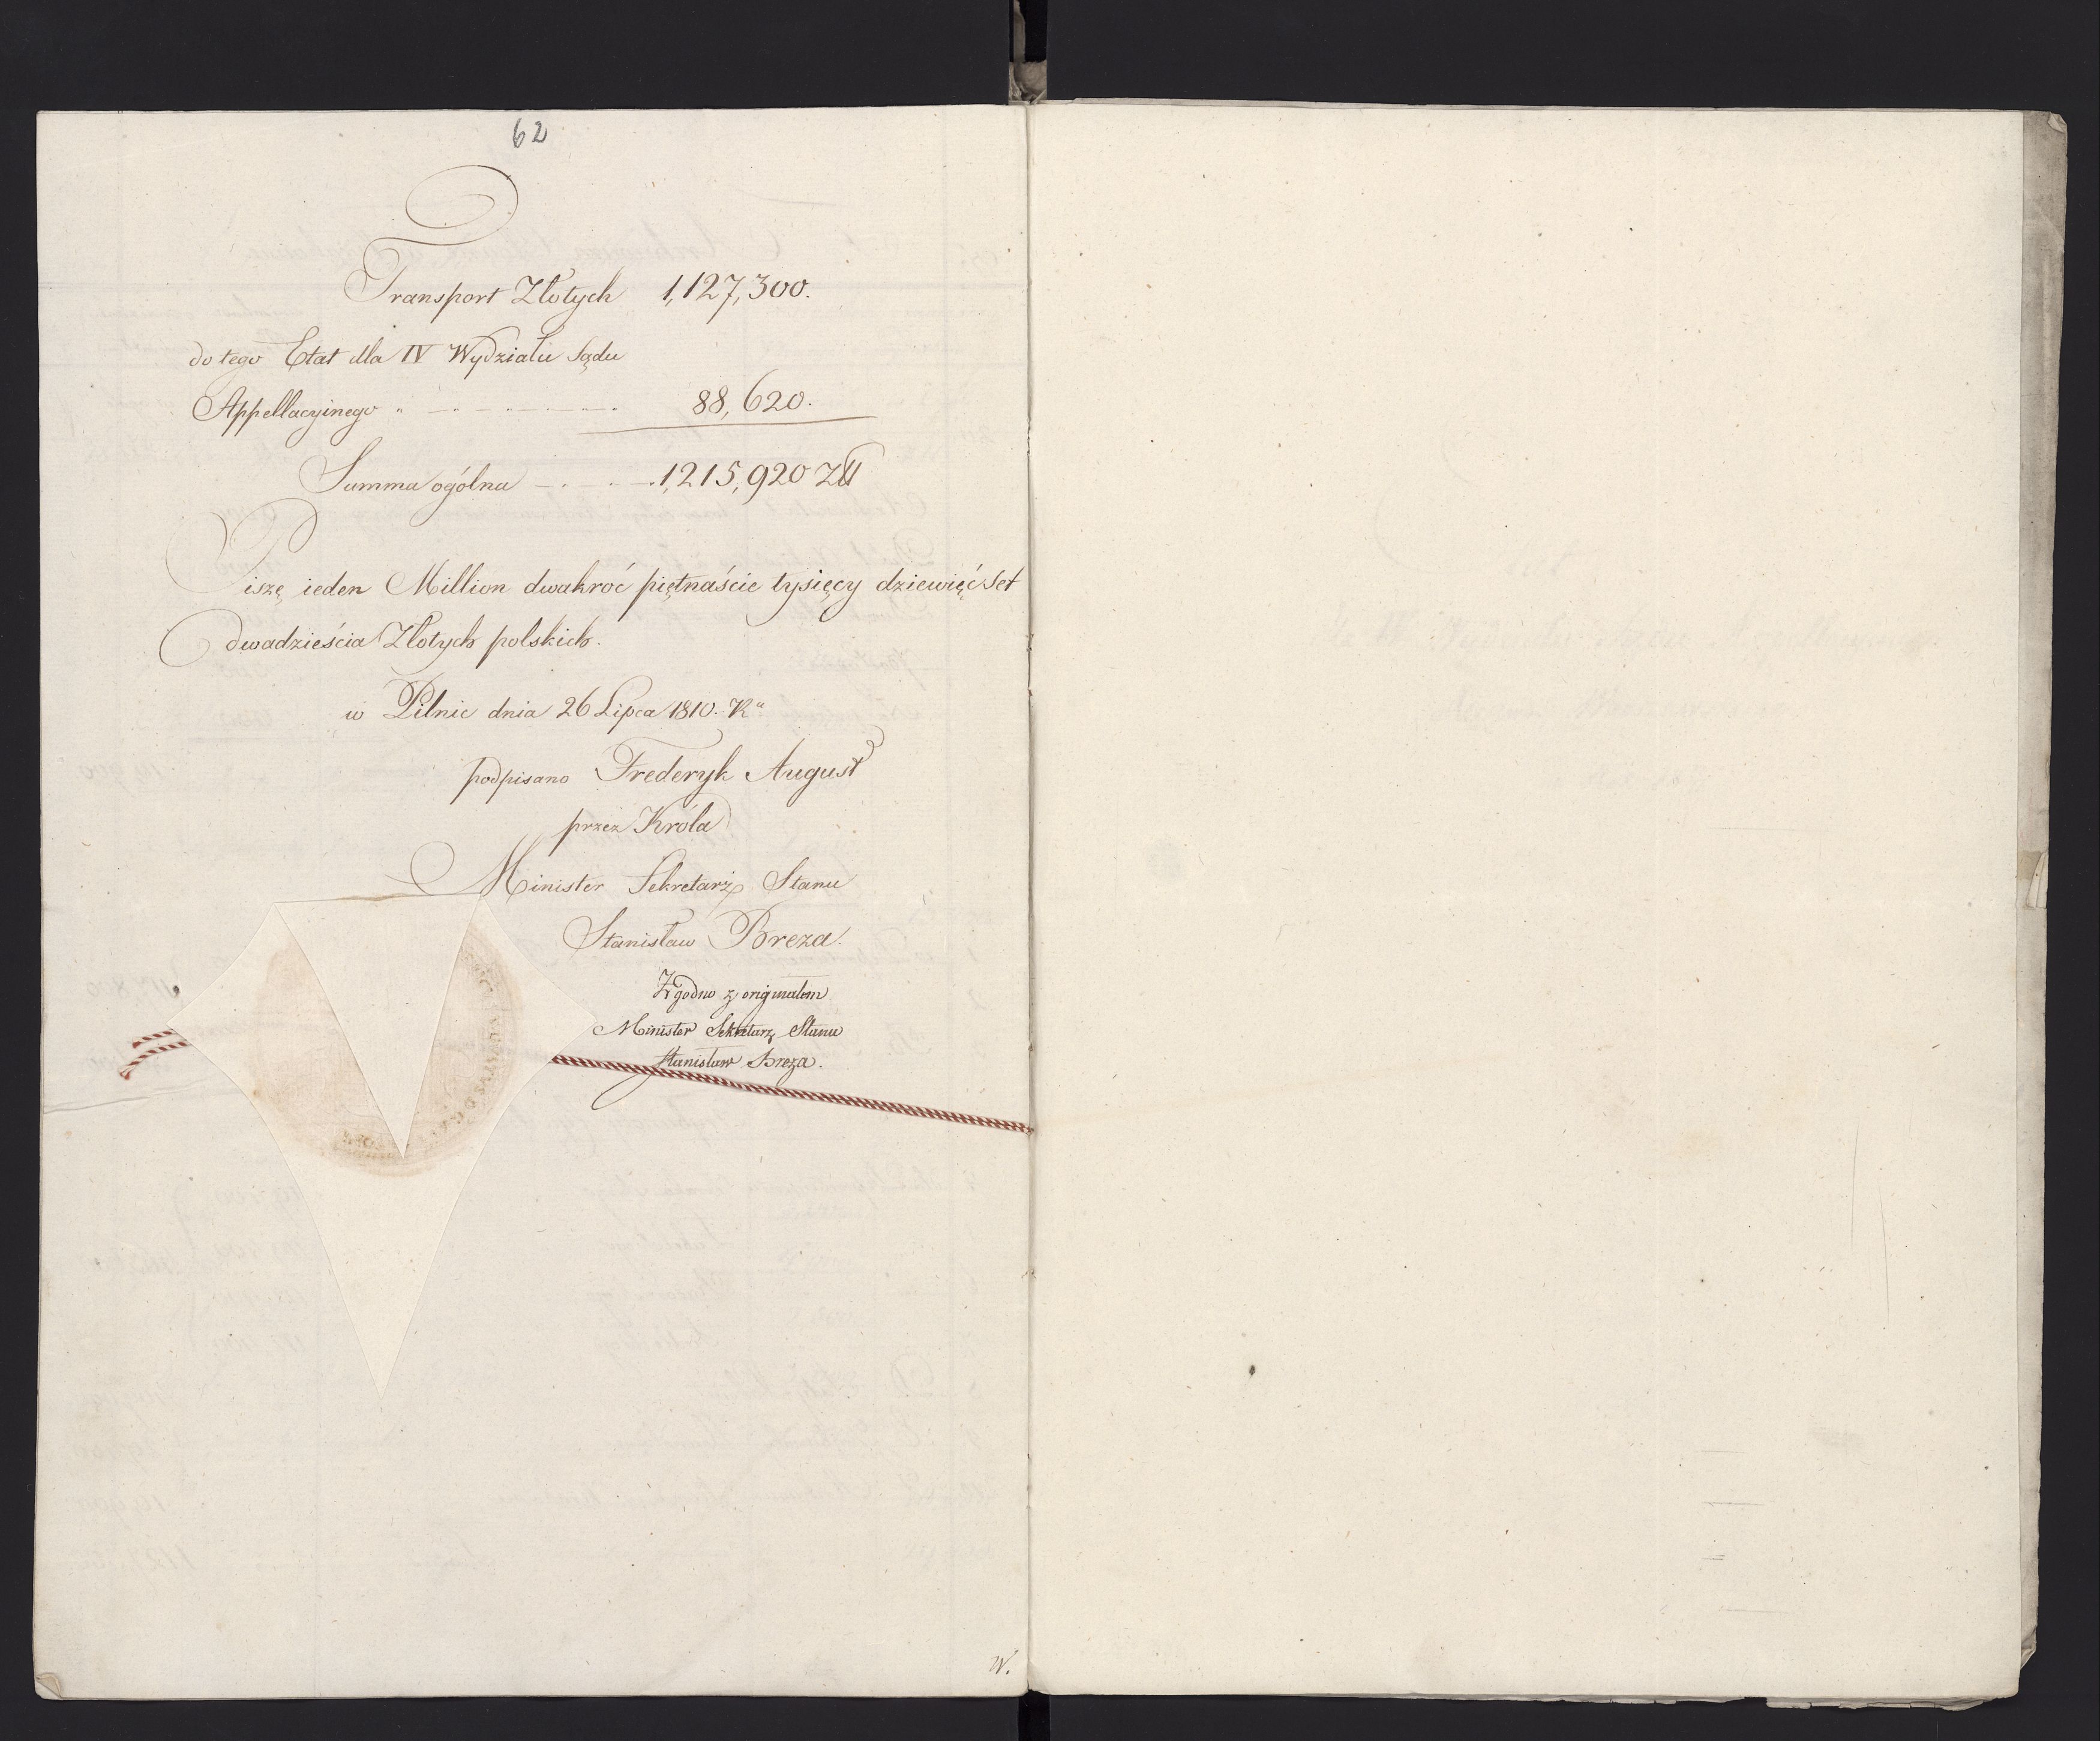 62
Transport Złotych 1,127,300.
do tego Etat dla IV Wydziału Sądu
Appellacyinego 88,620.
Summa ogólna 1,215,920 Złł
Piszę ieden Million dwakroć piętnaście tysięcy dziewięćset
dwadzieścia Złotych polskich.
w Pilnic dnia 26 Lipca 1810. Ru
podpisano Frederyk August
przez Króla
Minister Sekretarz Stanu
Stanisław Breza.
Zgodno z originałem
Minister Sekretarz Stanu
Stanisław Breza.
W.